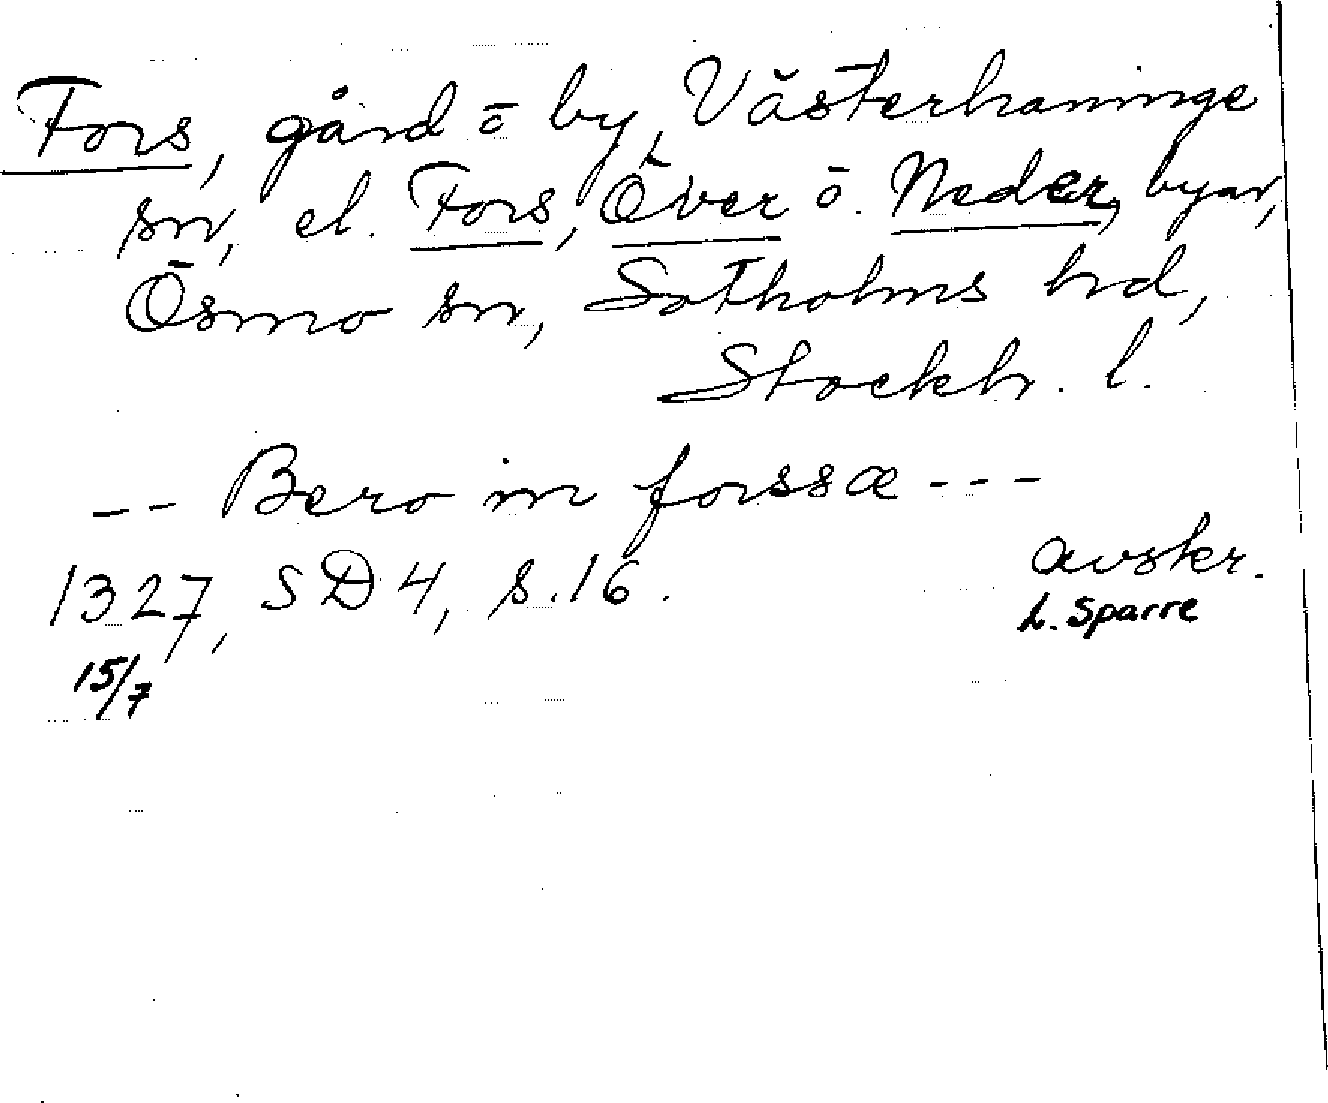 Fors, gård o by, Västerhaninge
sn, el. Fors, Över o. Neder, byar,
Ösmo sn, Sotholms hd,
Stockh. l.
-- Bero in forssæ ---
1327, SD 4, s. 16.
avskr.
L. Sparre
15/7